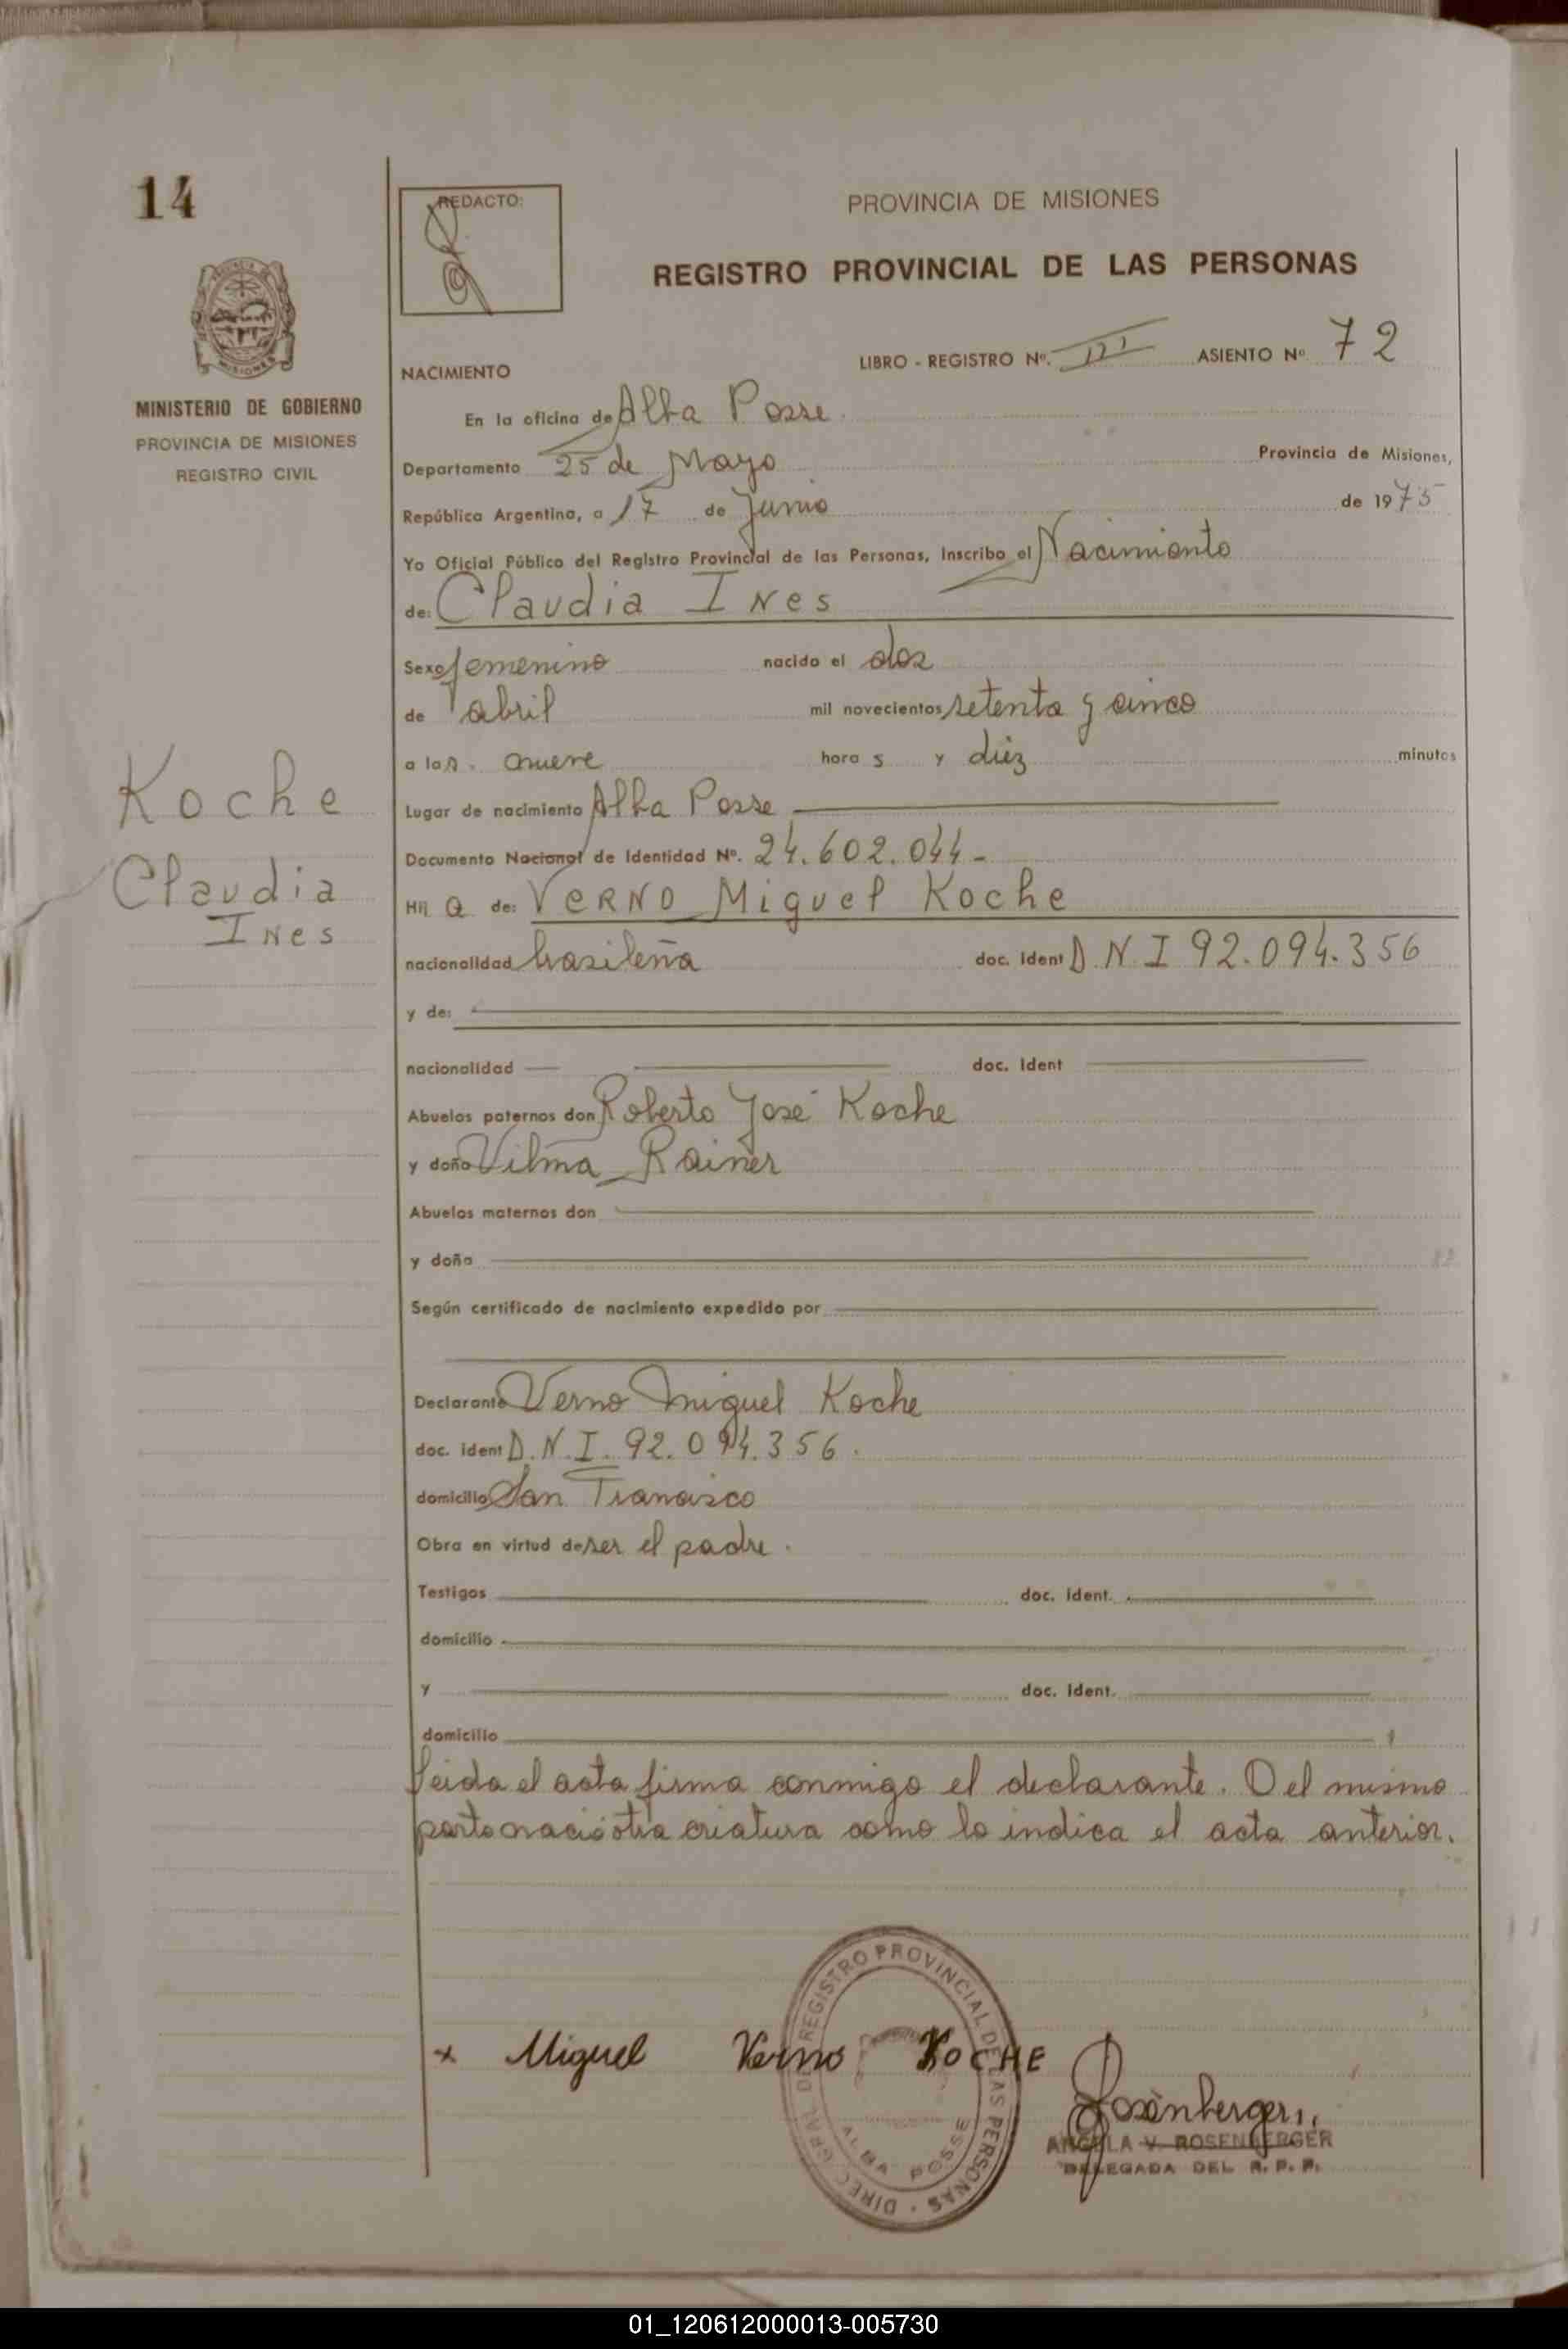 14
REDACTO:
PROVINCIA DE MISIONES
REGISTRO PROVINCIAL DE LAS PERSONAS
LIBRO - REGISTRO Nº. III ASIENTO Nº 72
NACIMIENTO
MINISTERIO DE GOBIERNO
PROVINCIA DE MISIONES
REGISTRO CIVIL
En la oficina de Alba Posse
Departamento 25 de Mayo Provincia de Misiones,
República Argentina, a 17 de Junio de 1975
Yo Oficial Público del Registro Provincial de las Personas, Inscribo el Nacimiento
de: Claudia Ines
Sexo femenino nacido el dos
de abril mil novecientos setenta y cinco
a las nueve horas y diez minutos
Koche
Claudia
Ines
Lugar de nacimiento Alba Posse
Documento Nacional de Identidad Nº. 24.602.044-
Hij a de: VERNO Miguel Koche
nacionalidad brasileña doc. ident D.N.I 92.094.356
y de:
nacionalidad doc. ident
Abuelos paternos don Roberto José Koche
y doña Vilma Rainer
Abuelos maternos don
y doña
Según certificado de nacimiento expedido por
Declarante Verno Miguel Koche
doc. ident D.N.I. 92.094.356.
domicilio San Francisco
Obra en virtud de ser el padre.
Testigos doc. ident.
domicilio
y doc. ident.
domicilio
Leida el acta firma conmigo el declarante. Del mismo
parto nació otra criatura como lo indica el acta anterior.
x Miguel Verno KOCHE
DIREC. GRAL. DE REGISTRO PROVINCIAL DE LAS PERSONAS
ALBA POSSE
Rosenberger
ANGELA V. ROSENBERGER
DELEGADA DEL R. P. P.
01_120612000013-005730